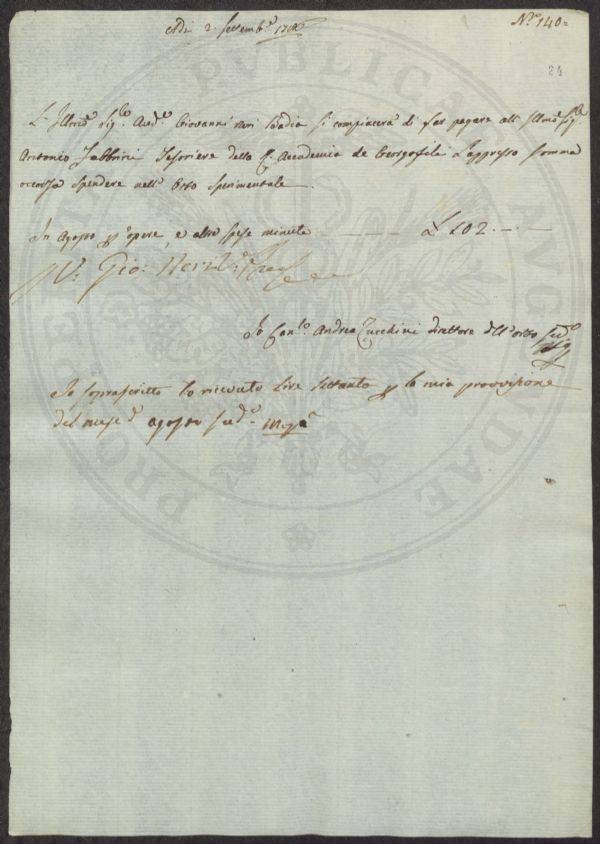 Adi 2. Settemb.e 178
N.o 140=
24
L'Illmo Sig.e Aud.e Giovanni Neri Badia si compiacerà di far pagare all' Illmo Sig.e
Antonio Fabbrini Tesoriere della R. Accademia de Georgofili l'appresso somma
occorsa spendere nell' Orto Sperimentale.
In Agosto p opere, e altre spese minute — — — £ 102. — . —
V.o Gio: Neri
Io Can.co Andrea Zucchini direttore dell'orto Sud.o
Io soprascritto ho ricevuto Lire settanta p la mia provvisione
del mese d agosto Sud.o
PVBLICAE